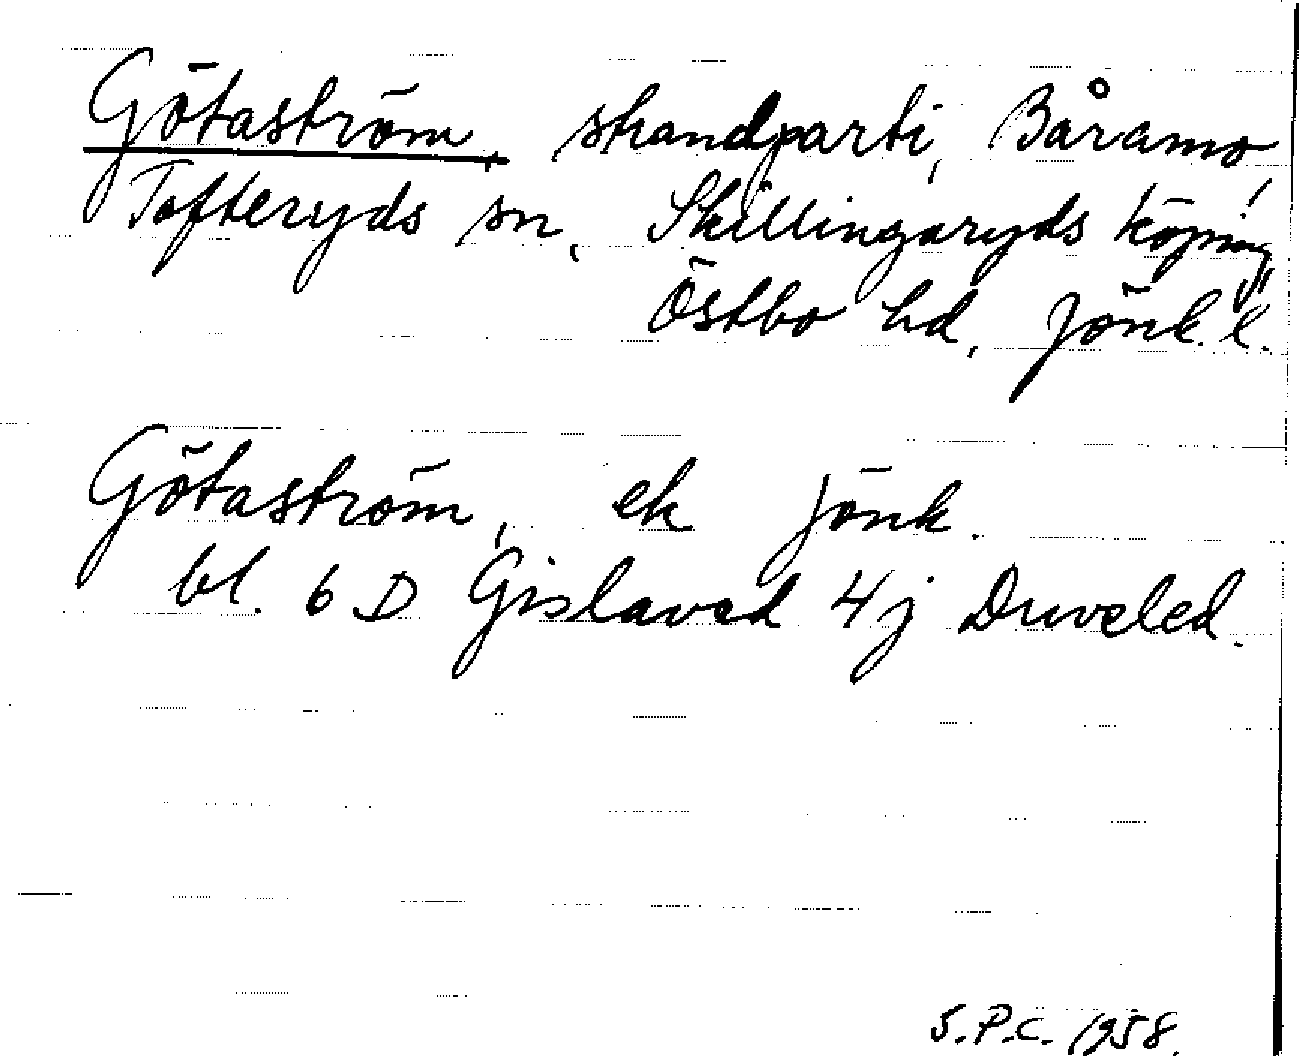 Götaström, strandparti, Båramo,
Tofteryds sn, Skillingaryds köping,
Östbo hd, Jönk. l.
Götaström, ek Jönk.
bl. 6 D Gislaved 4j Duveled.
S.P.C. 1958.